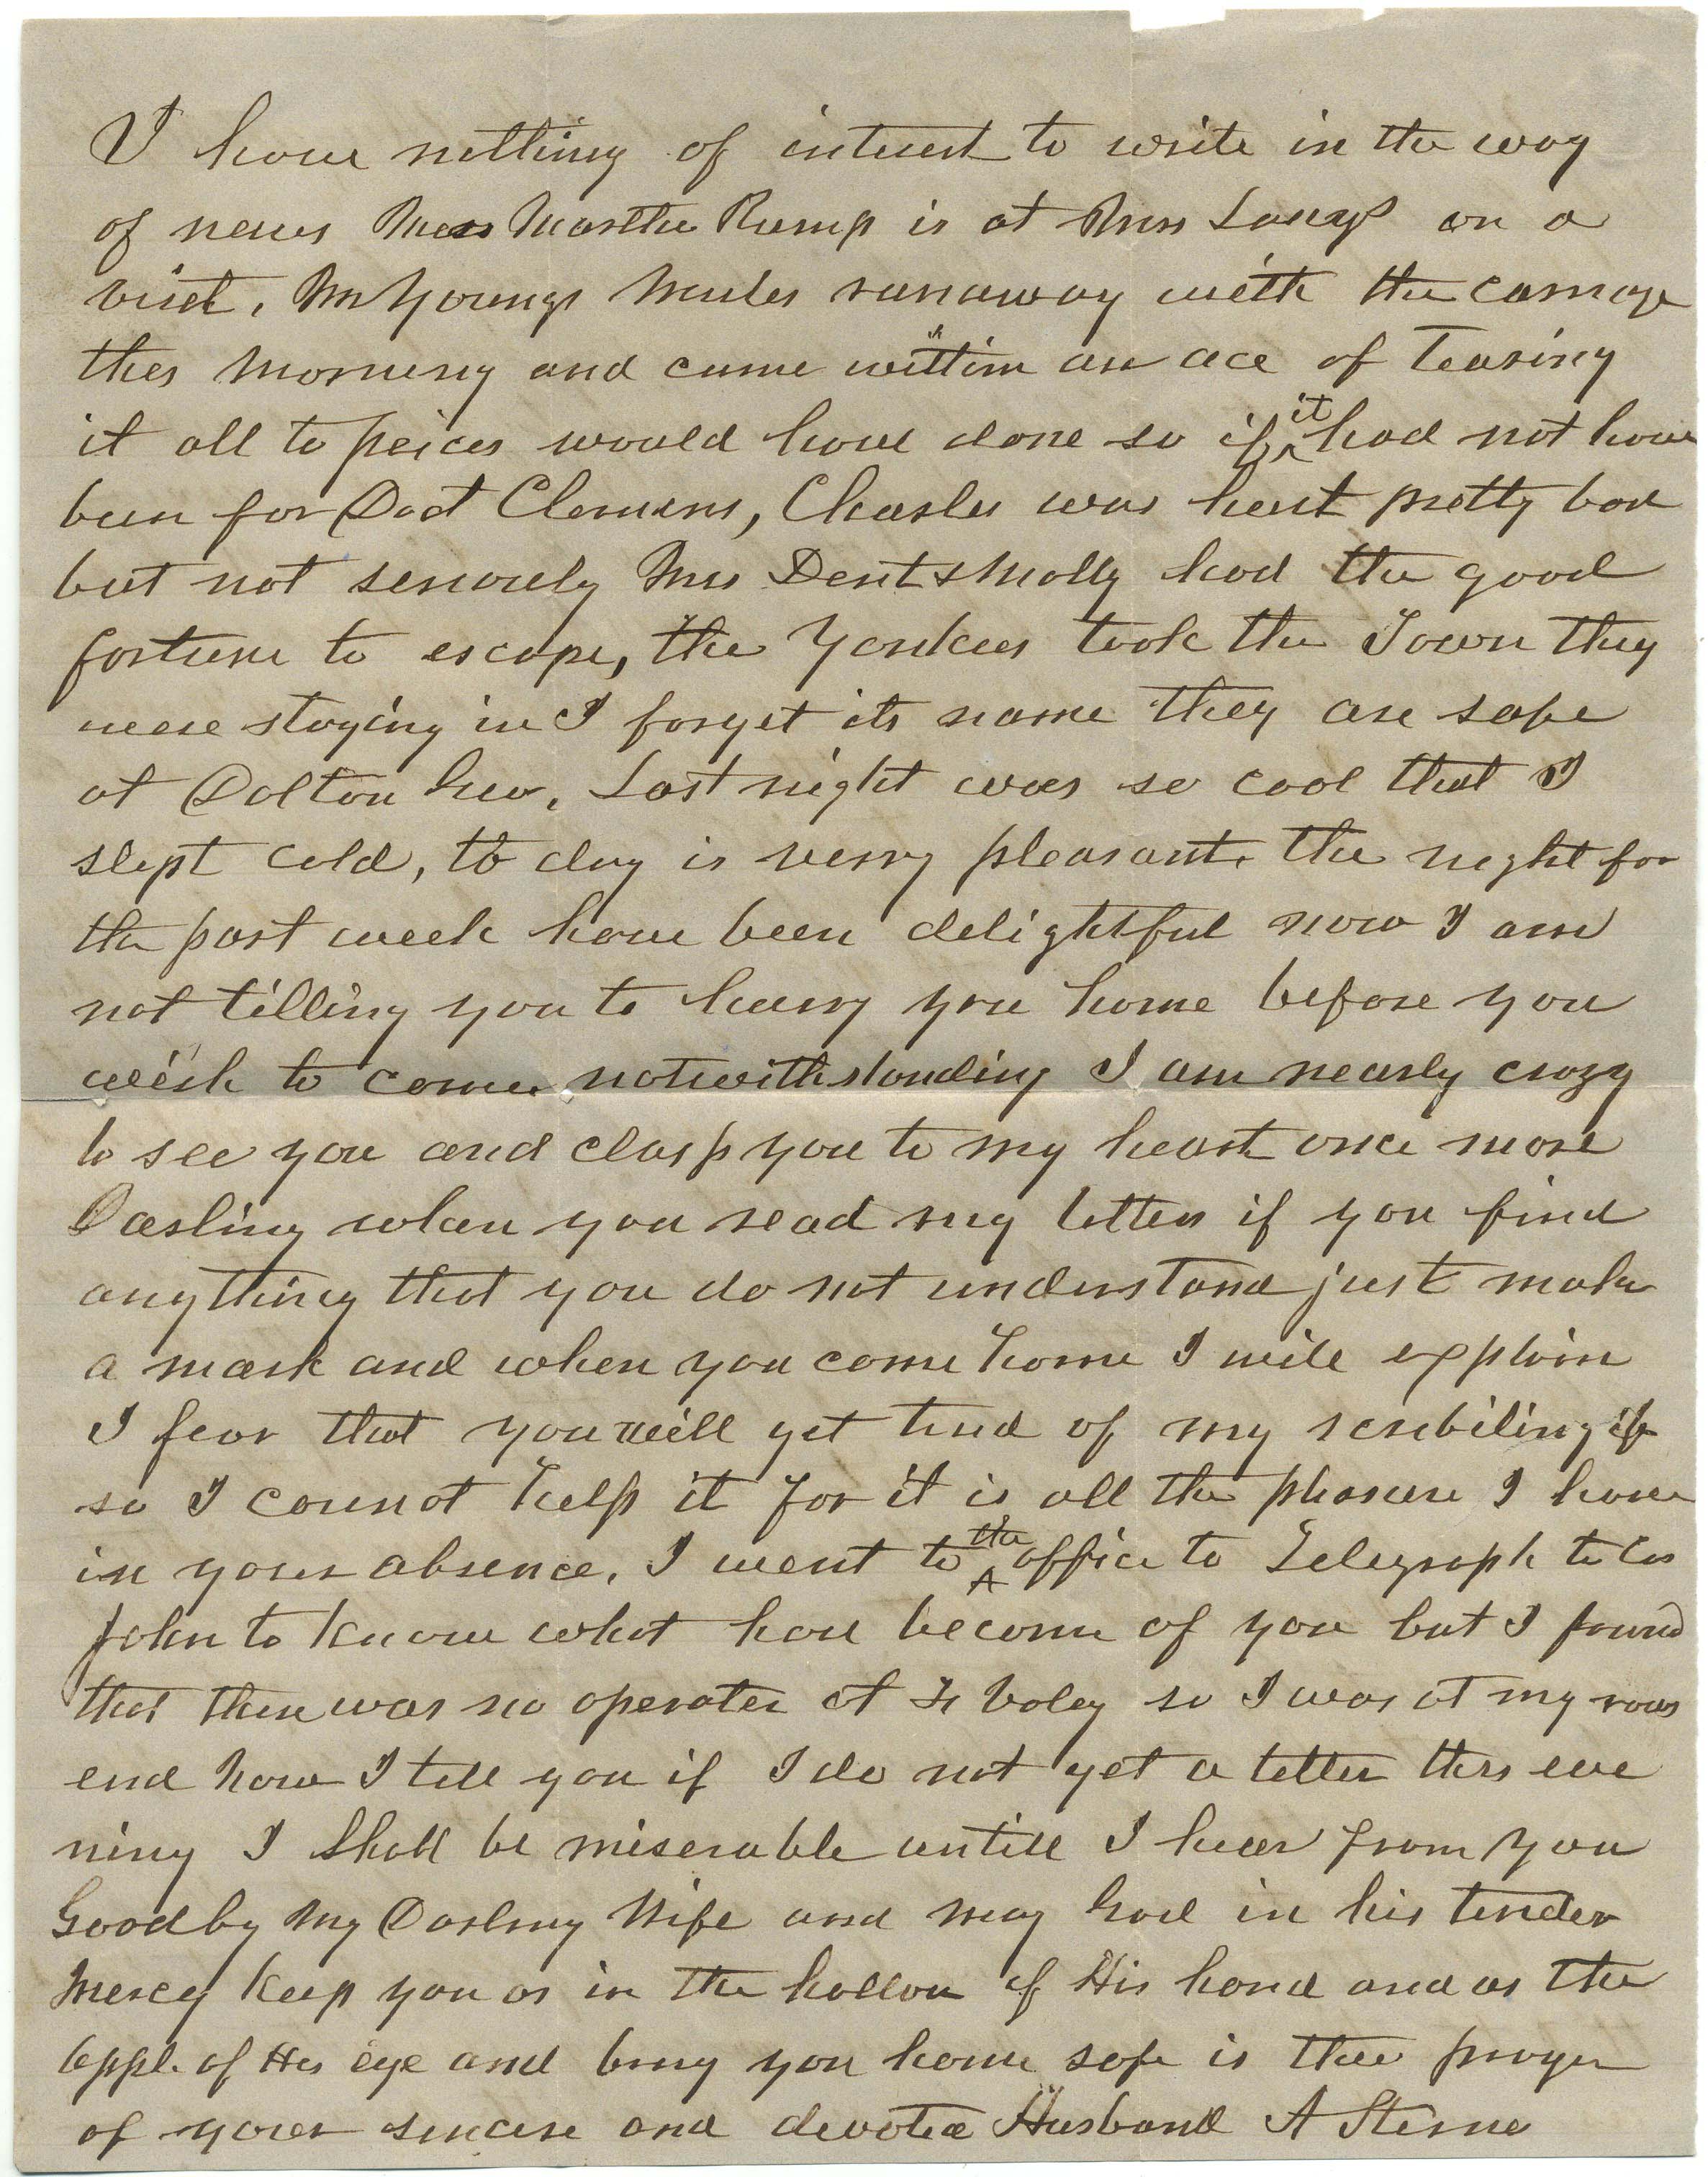 I have nothing of interest to write in the way
of news Miss Martha Rump is at Mrs Longs on a
visit, Mr Youngs Mules runaway with the carriage
this Morning and came within an ace of Tearing
it all to peices would have done so if it had not have
been for Doct Clemens, Charles was hurt pretty bad
but not seriously Mrs Dent & Molly had the good
fortune to escape, the Yankees took the Town they
were staying in I forget its name they are safe
at Dalton Geo. Last night was so cool that I
slept cold, to day is verry pleasant. The night for
the past week have been delightful now I am
not tilling you to hurry you home before you
wish to come notwithstanding I am nearly crazy
to see you and clasp you to my heart once more
Darling when you read my letters if you find
anything that you do not understand just make
a mark and when you come home I will explain
I fear that you will get tired of my scribiling if
so I cannot help it for it is all the pleasure I have
in your absence. I went to the office to Telegraph to Cos
John to know what had become of you but I found
that there was no operater at Ft Valey so I was at my rows
end Now I tell you if I do not get a letter this eve
ning I Shall be miserable untill I hear from you
Goodby My Darling Wife and may God in his tender
Mercy keep you as in the hollow of His hand and as the
apple of His eye and bring you home safe is the prayer
of your sincere and devoted Husband A Sterne